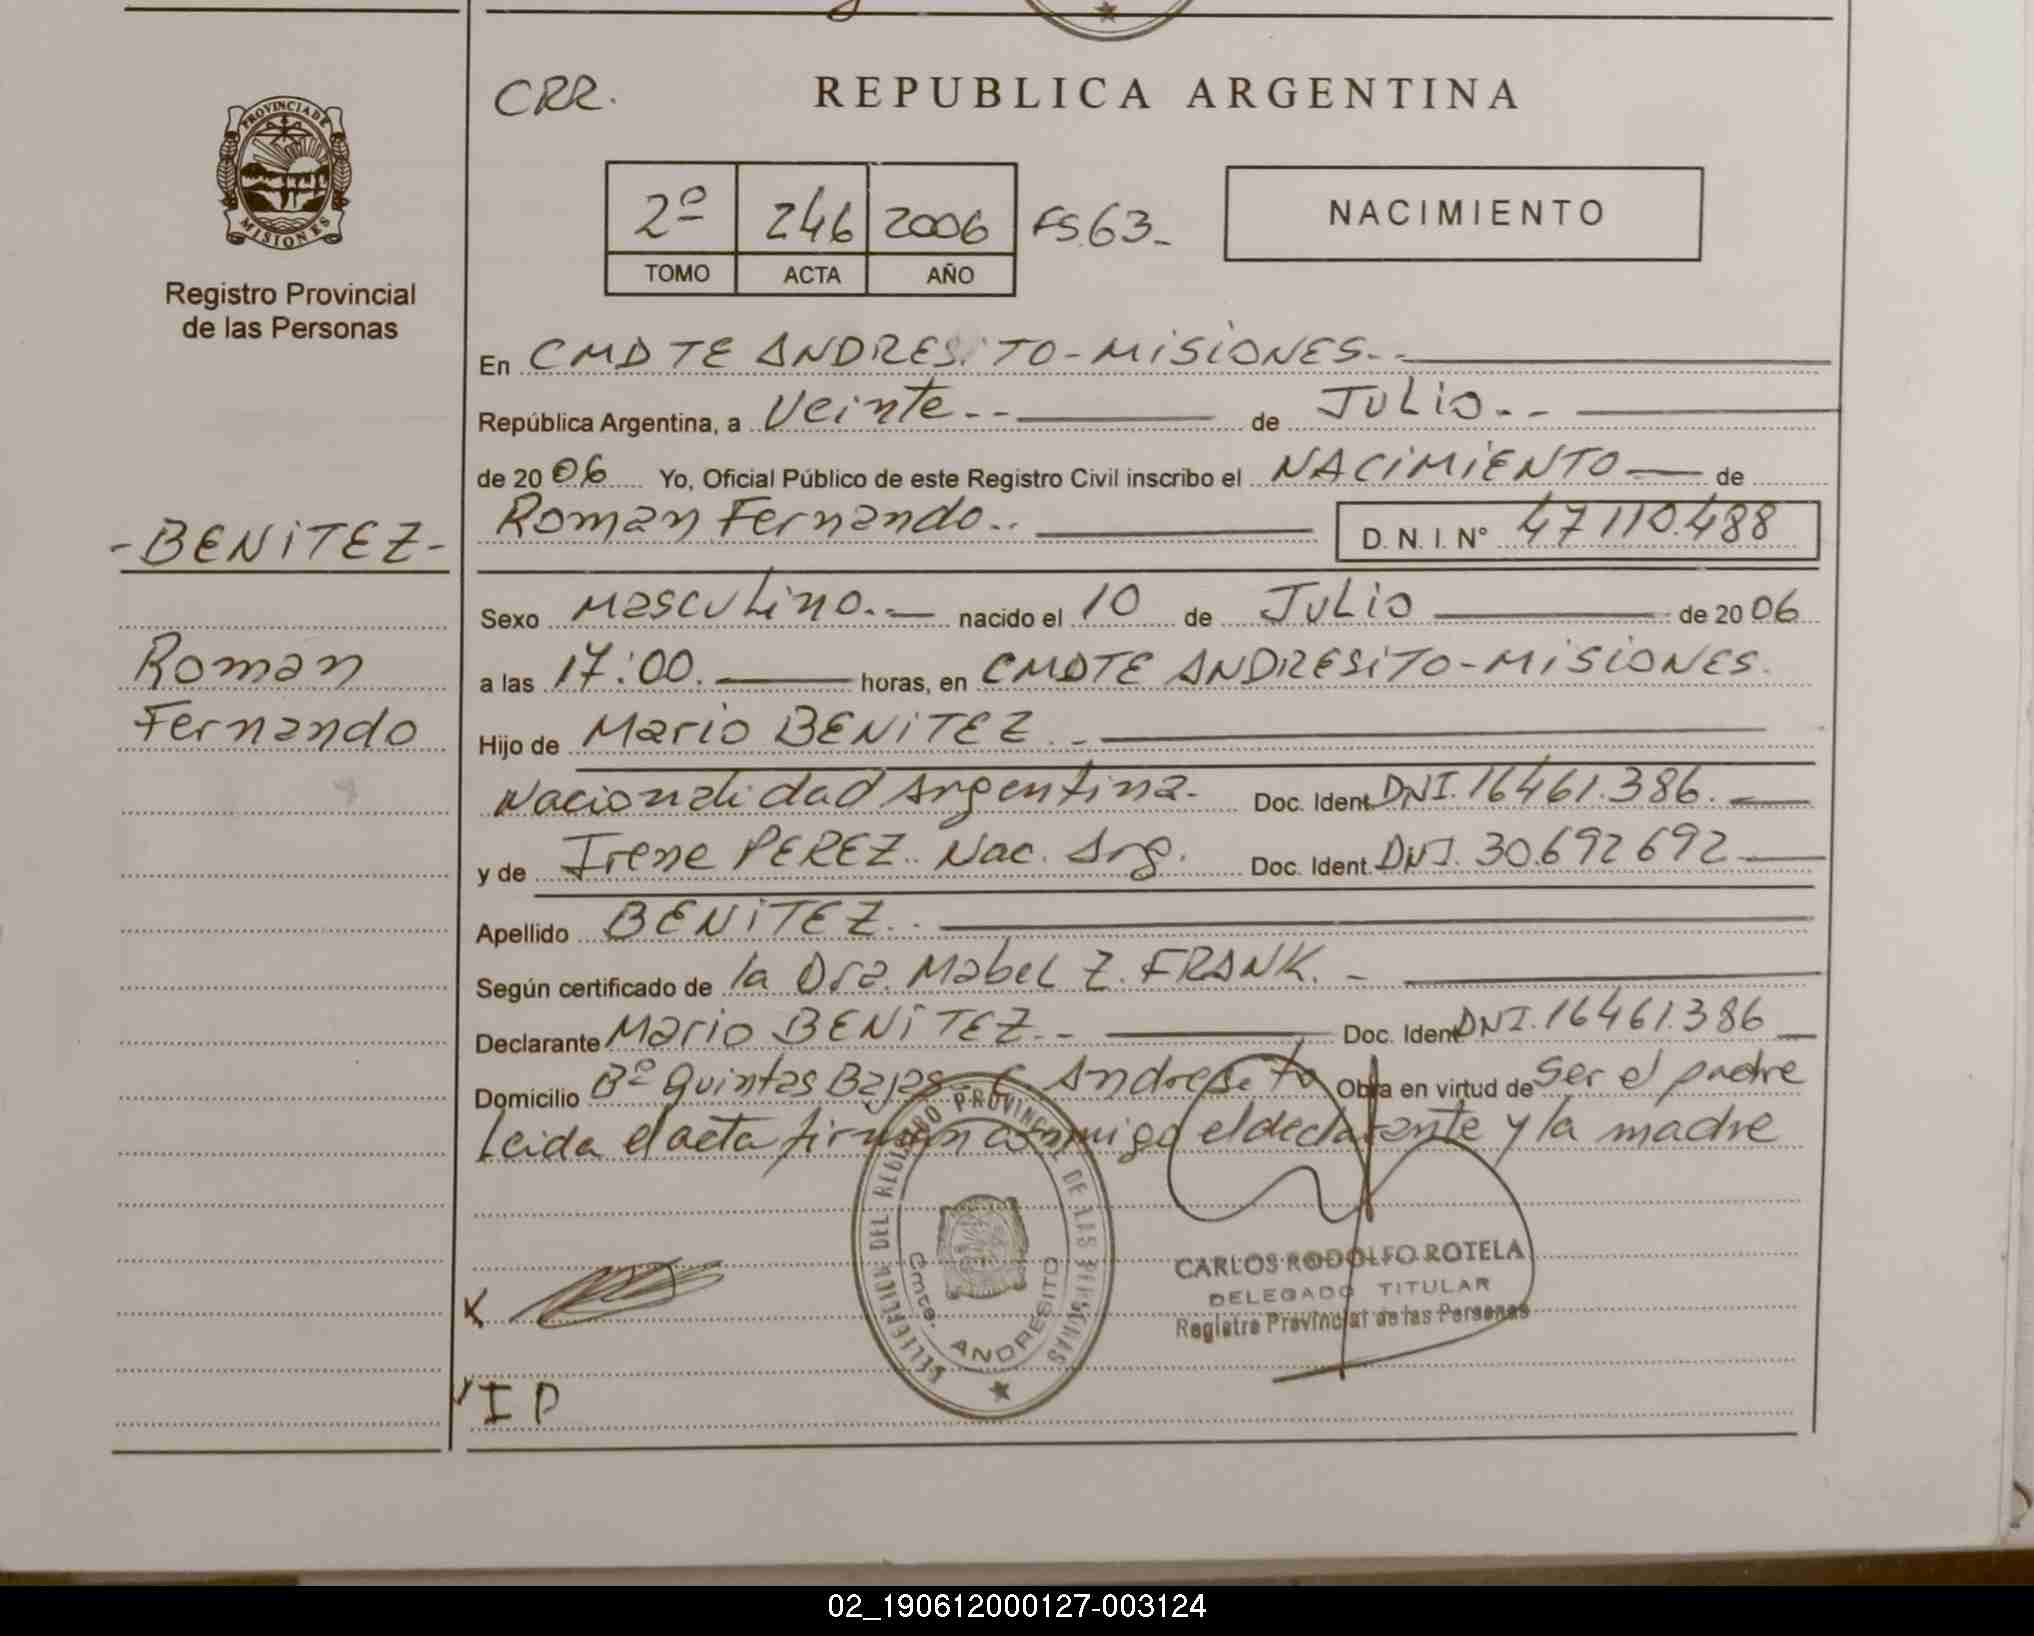 PROVINCIA DE
MISIONES
Registro Provincial
de las Personas
-BENITEZ-
Roman
Fernando
CRR.
REPUBLICA ARGENTINA
2º 246 2006 FS.63-
TOMO ACTA AÑO
NACIMIENTO
En CMDTE ANDRESITO-MISIONES.-
República Argentina, a Veinte.-- de JULIO.--
de 20 06 Yo, Oficial Público de este Registro Civil inscribo el NACIMIENTO de
Roman Fernando.. D. N. I. Nº 47110.488
Sexo Masculino.- nacido el 10 de JULIO de 20 06
a las 17:00. horas, en CMDTE ANDRESITO-MISIONES.
Hijo de Mario BENITEZ.-
Nacionalidad Argentina.- Doc. Ident. DNI.16461.386.
y de Irene PEREZ.. Nac. Arg. Doc. Ident. DNI. 30.692692
Apellido BENITEZ..
Según certificado de la Dra. Mabel Z. FRANK.-
Declarante Mario BENITEZ.- Doc. Ident DNI.16461.386
Domicilio Bº Quintas Bajas- C. Andresito Obra en virtud de Ser el padre
Leida el acta firman conmigo el declarante y la madre
DEL REGISTRO PROVINCIAL DE LAS PERSONAS
Cmte. ANDRESITO
CARLOS RODOLFO ROTELA
DELEGADO TITULAR
Registro Provincial de las Personas
X
I P
02_190612000127-003124